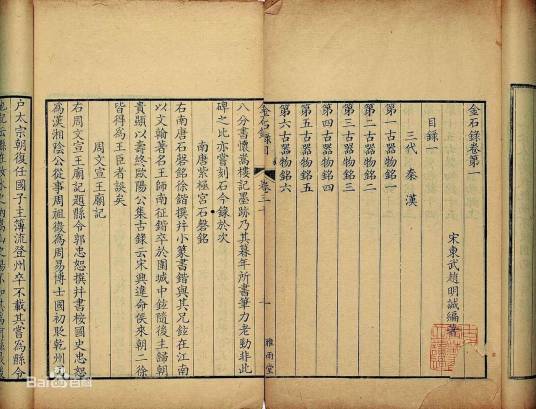 金石錄卷第一
宋東武趙明誠編著
目錄一
三代 秦 漢
第一古器物銘一
第二古器物銘二
第三古器物銘三
第四古器物銘四
第五古器物銘五
第六古器物銘六
金石錄 卷三十 一 雅雨堂
八分書懷嵩樓記墨跡乃其暮年所書筆力老勁非此
碑之比亦嘗刻石今錄於次
南唐紫極宮石磬銘
右南唐石磬銘徐鍇撰并小篆書鍇與其兄鉉在江南
以文翰著名王師南征鍇卒於圍城中鉉隨後主歸朝
貴顯以壽終歐陽公集古錄云宋興違命侯來朝二徐
皆得為王臣者誤矣
周文宣王廟記
右周文宣王廟記趙縣令郭忠恕撰并書按國史忠恕
為漢湘陰公從事周祖徵為周易博士國初貶乾州司
戶太宗朝復任國子主簿流登州卒不載其嘗為縣令
Bai百科